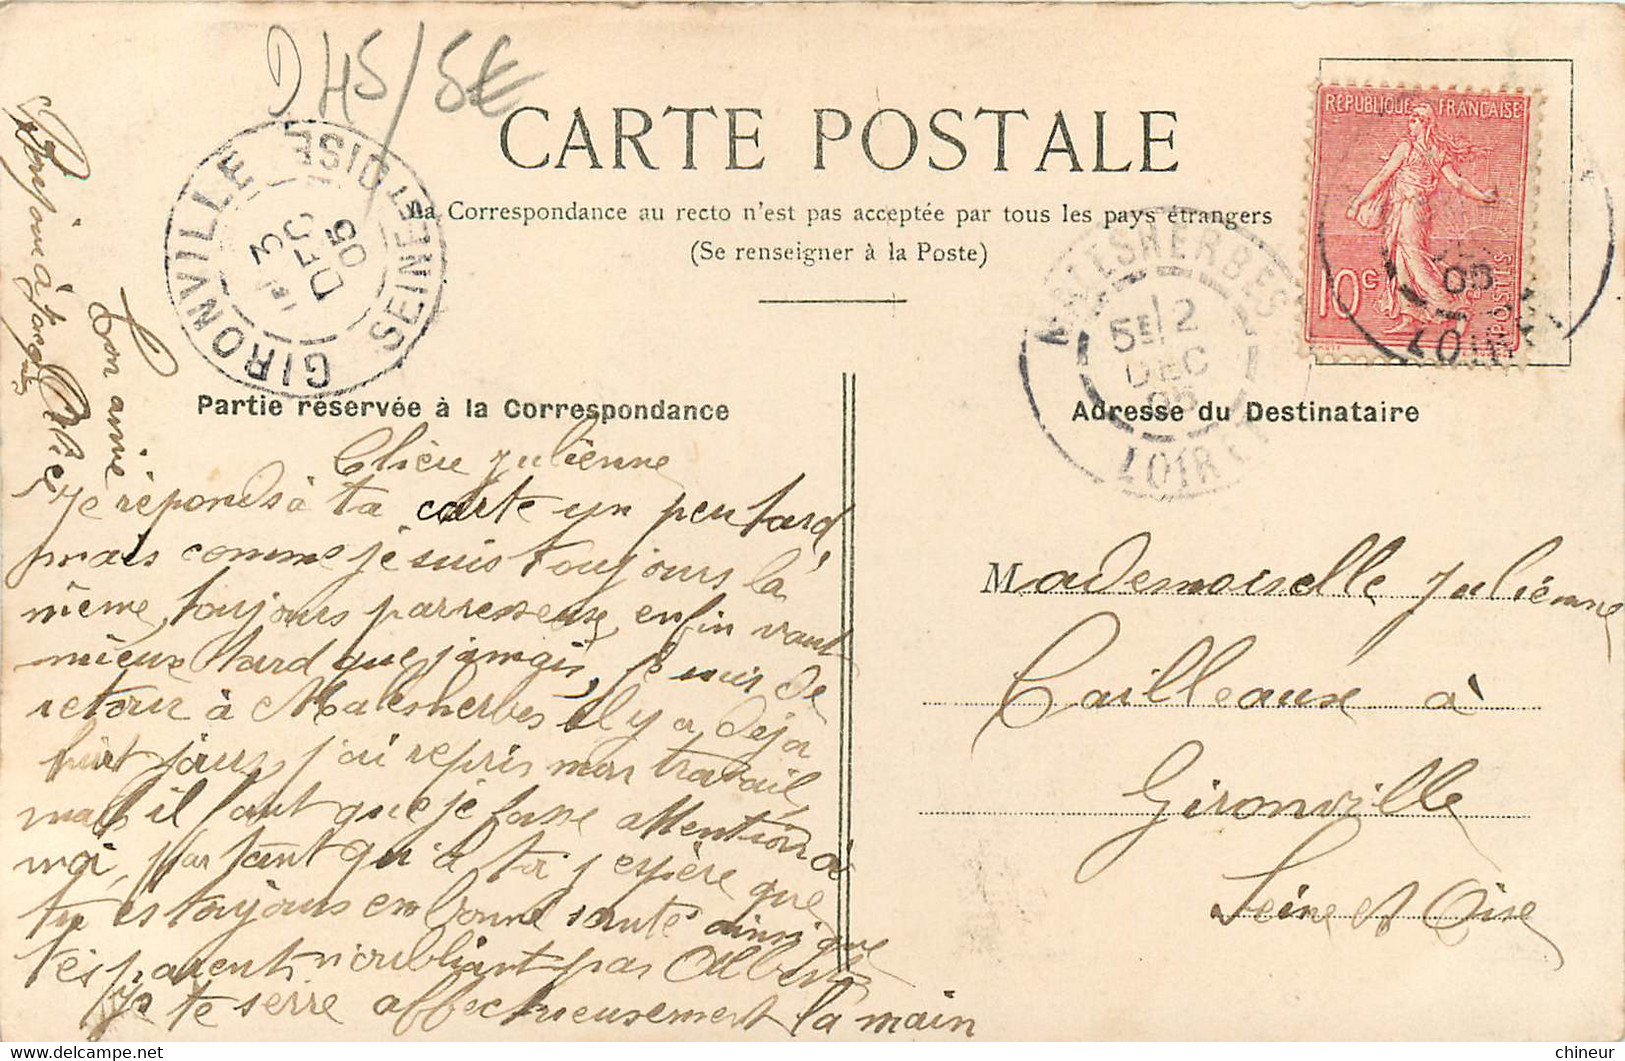 D 45/5€
CARTE POSTALE
La Correspondance au recto n'est pas acceptée par tous les pays étrangers
(Se renseigner à la Poste)
REPUBLIQUE FRANÇAISE
10c
POSTES
GIRONVILLE
SEINE-ET-OISE
3
DEC
05
MALESHERBES
5E/2
DEC
05
LOIRET
05
LOIRET
Partie réservée à la Correspondance
Adresse du Destinataire
Chère Julienne
Je réponds à ta carte un peu tard
mais comme je suis toujours la
même, toujours parresseuse, enfin vaut
mieux tard que jamais, je suis de
retour à Malesherbes il y a deja
huit jours, j'ai repris mon travail,
mais il faut que je fasse attention à
moi, partant qu'à toi j'espère que
tu es toujours en bonne santé ainsi que
tes parent, n'oubliant pas Albert
Je te serre affectueusement la main
Ton amie
Alice
Mademoiselle Julienne
Cailleaux à
Gironville
Seine et Oise
chineur